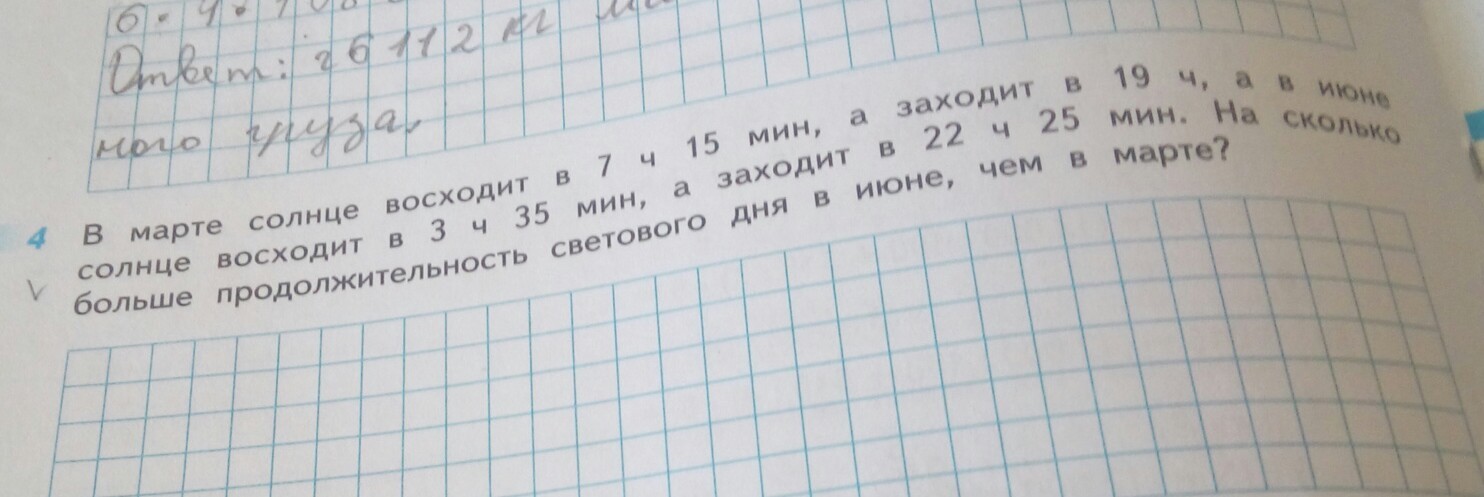 6 · 4 ·
Ответ: 26112 кг
ного груза.
4 В марте солнце восходит в 7 ч 15 мин, а заходит в 19 ч, а в июне
солнце восходит в 3 ч 35 мин, а заходит в 22 ч 25 мин. На сколько
V больше продолжительность светового дня в июне, чем в марте?